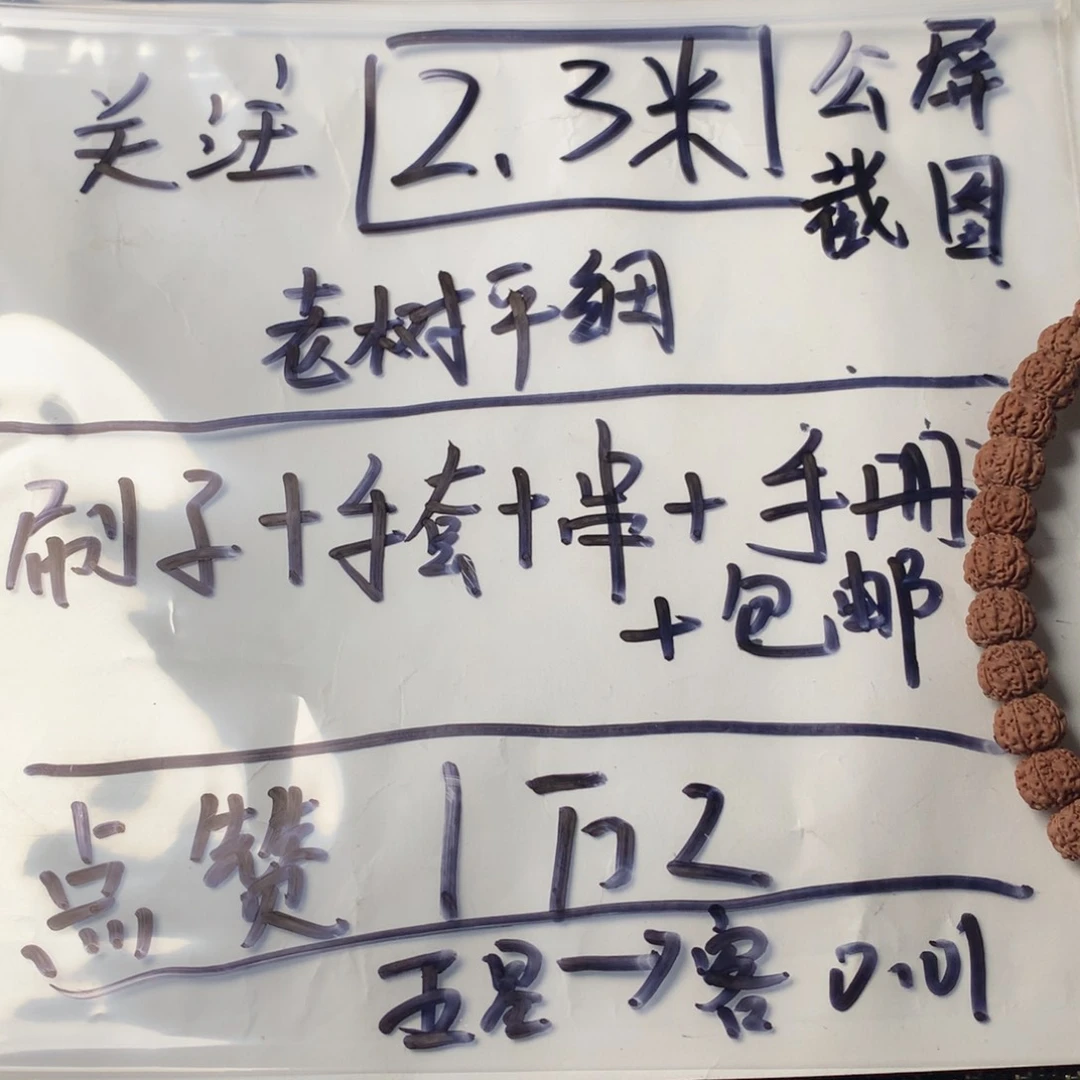 关注 2.3米 公屏
截图.
老树平纲
刷子+手套+串+手册
+包邮
点赞 1万2
五星→客 0.01